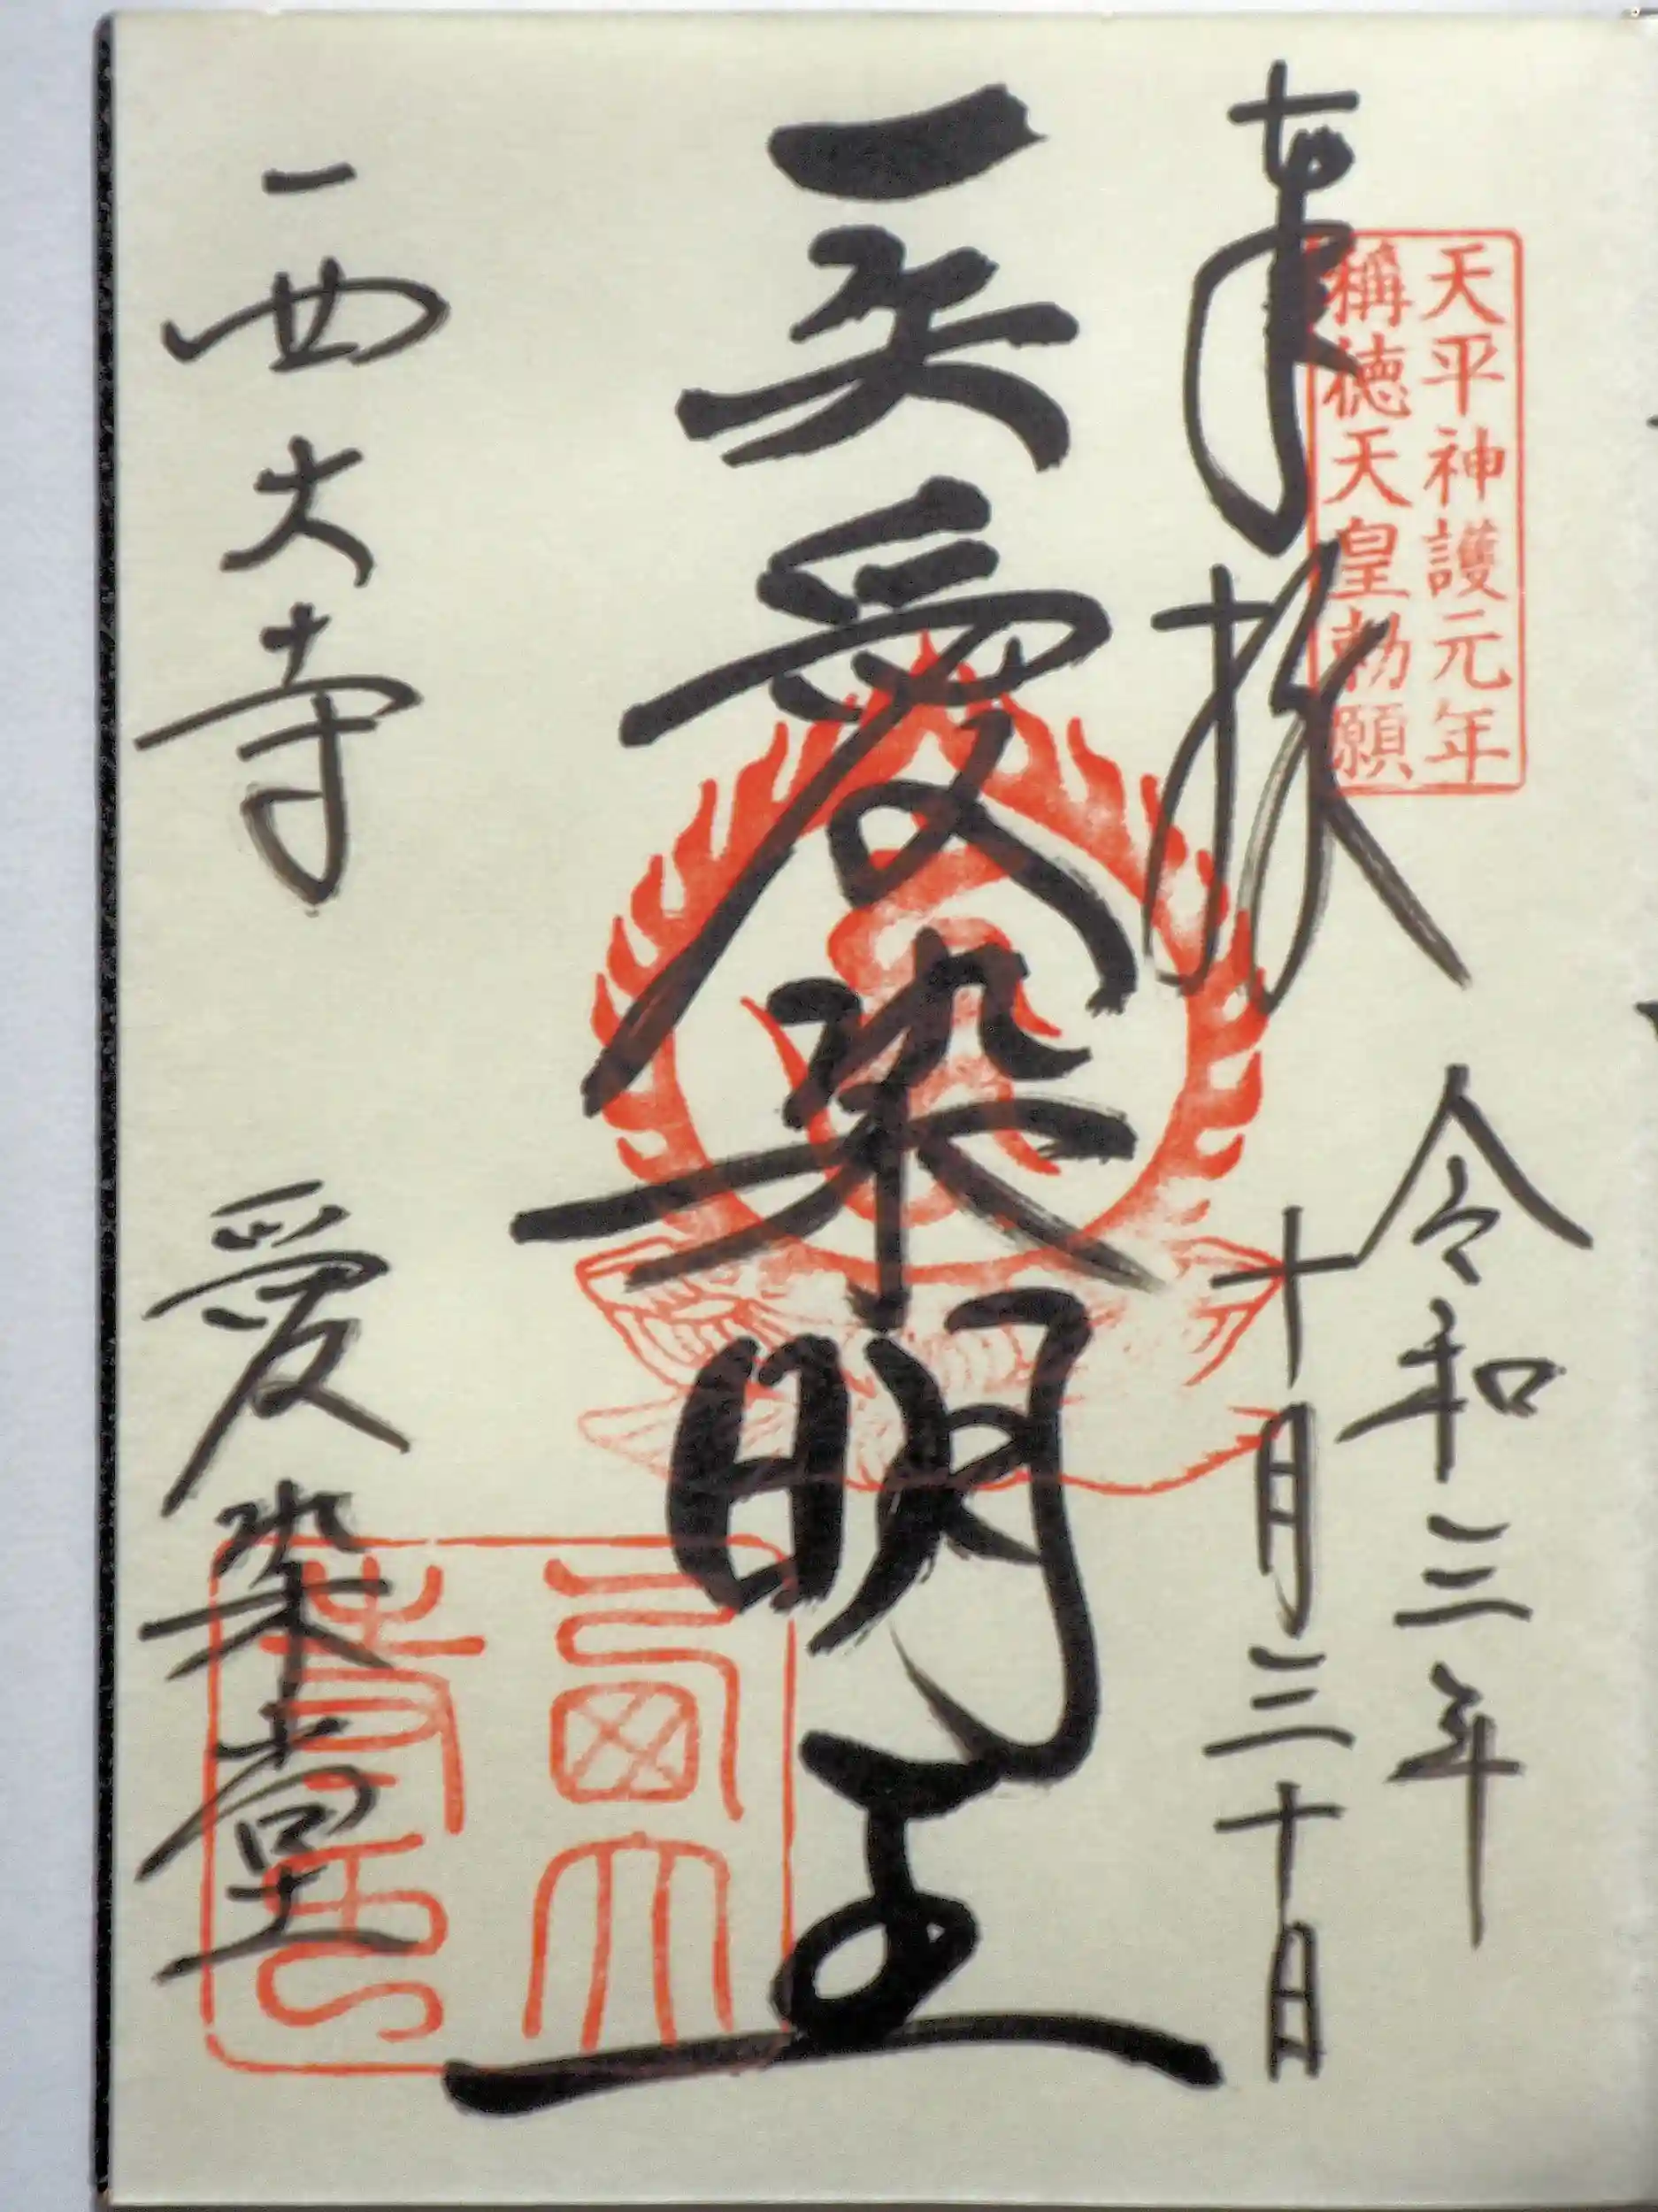 天平神護元年
稱徳天皇勅願
奉拝
令和三年
十月三十日
一矢愛染明王
西大寺 愛染堂